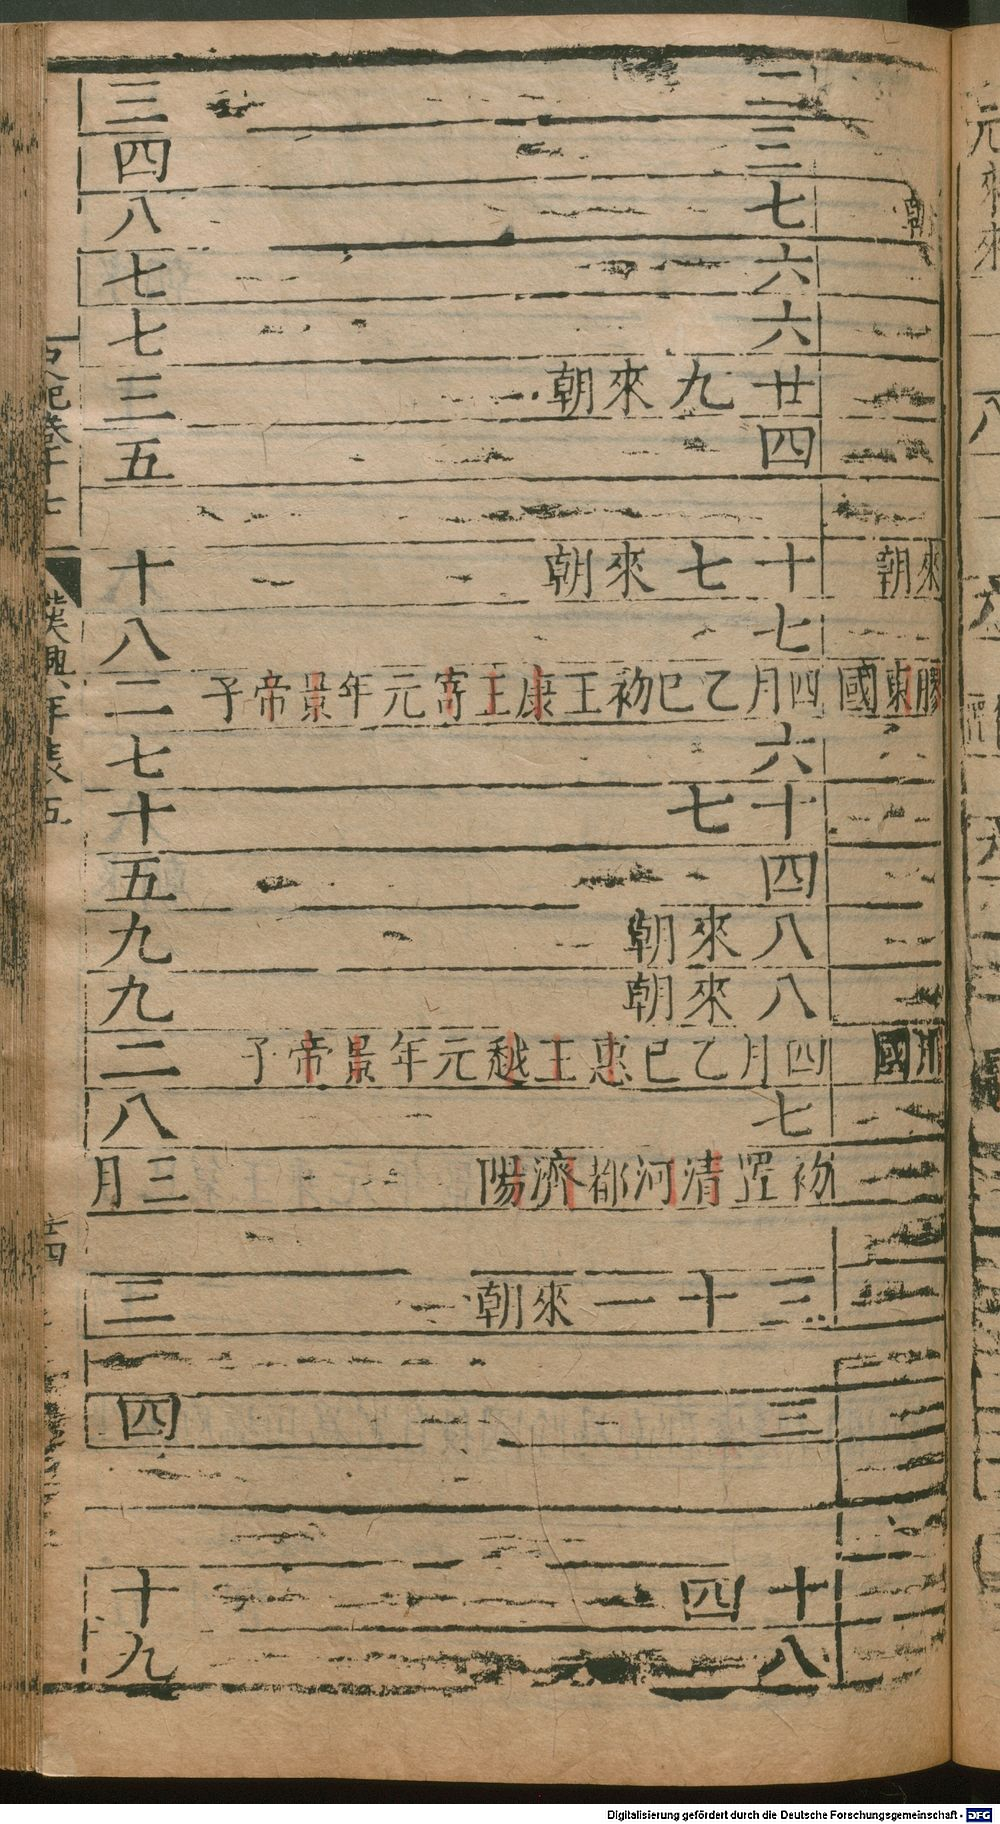 二 三
三 四
朝 七 八
六 七
六 七
廿九來朝 三
四 五
來朝 十七來朝 十
七 八
膠東國 四月乙巳初王康王寄元年景帝子 二
六 七
十七 十
四 五
八來朝 九
八來朝 九
川國 四月乙巳惠王越元年景帝子 二
七 八
初置清河都濟陽 三月
三十一來朝 三
三 四
十四 十
八 九
史記卷十七 漢興年表五
Digitalisierung gefördert durch die Deutsche Forschungsgemeinschaft - DFG